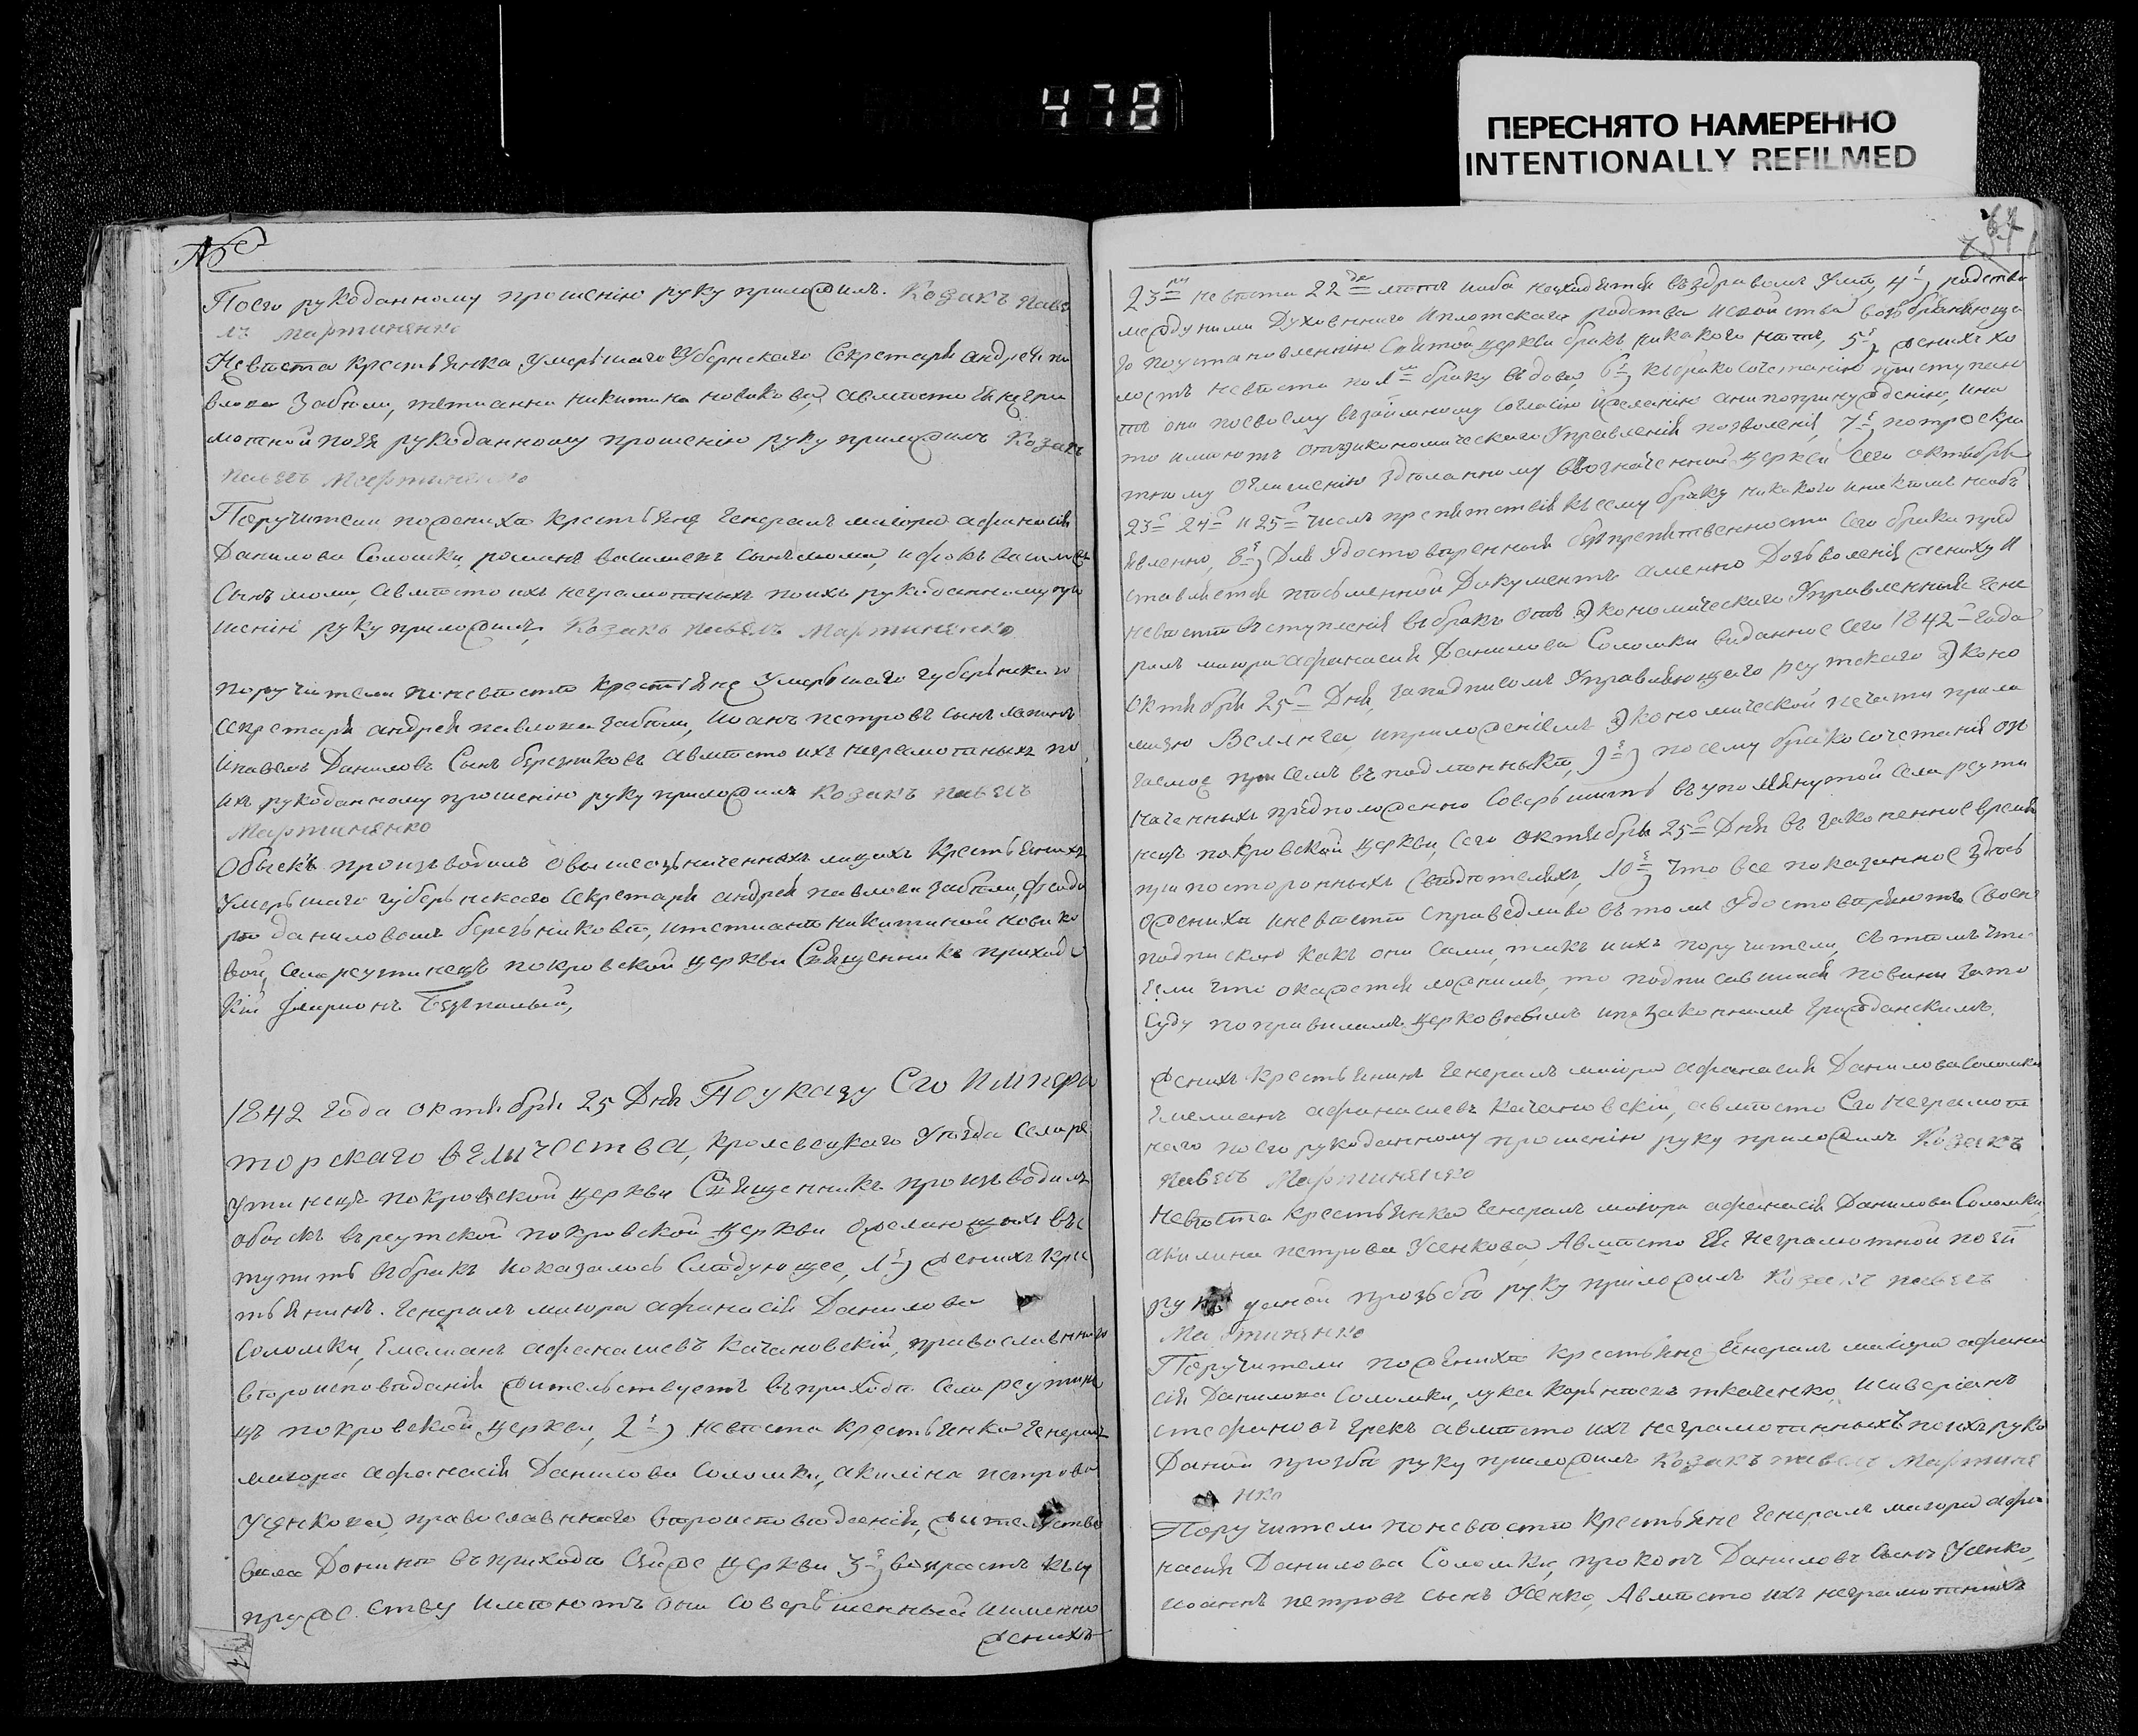 478
ПЕРЕСНЯТО НАМЕРЕННО
INTENTIONALLY REFILMED
№
Поего рукоданному прошенію руку приложилъ. Козакъ Паве
лъ Мартиненко
Невѣста крестьянка умершаго Губернскаго Секретаря андрея па
влова Забѣли, тетианна никитина новикова, авмѣсто ея неграм
мотной поея рукоданному прошенію руку приложилъ Козакъ
Павелъ Мартиненко
Поручители пожениха крестьяне Генералъ маіора афанасія
Данилова Соломки, романъ васильевъ сынъ мома, и василіев
Сынъ мома, авмѣсто ихъ неграмотныхъ поихъ рукоданному про
шенію руку приложилъ, Козакъ павелъ Мартиненко
поручители поневѣсте крестьяне умершаго губернскаго
секретаря андрея павлова забѣли, иоанъ петровъ сынъ
ипавелъ Даниловъ Сынъ березниковъ авмѣсто ихъ неграмотныхъ по
ихъ рукоданному прошенію руку приложилъ Козакъ павелъ
Мартиненко
Обыскъ произъводилъ овышеозначенныхъ лицахъ крестьянахъ
умершаго губернскаго секретаря андрея павлова забѣли, феодо
рѣ даниловомъ березниковѣ, итетианѣ никитиной новико
вой, села реутинецъ покровской церкви Священникъ приходс
кій Иларионъ Безпалый,
1842 года октября 25 Дня Поуказу Его Импера
торскаго величества, кролевецкаго уѣзда села ре
утинецъ покровской церкви Священникъ произъводилъ
обыскъ въреутской покровской церкви ожелающихъ въс
тупить въбракъ иоказалось слѣдующее, 1е) женихъ кре
тьянинъ. Генералъ маіора афанасія Данилова
Соломки, Емелианъ афанасиевъ качановскій, православнаго
вѣроисповѣданія жительствуетъ въприходѣ села реутин
цъ покровской церкви, 2е) невѣста крестьянка генералъ
маіора афанасія Данилова Соломки, акилина петрова
Усенкова, православнаго вѣроисповѣданія, жительство
вала Донинѣ въприходѣ Сейже церкви 3е) возрастъ късу
пружеству имѣютъ они совершенный иименно
женихъ
23 невѣста 22 лѣтъ иоба находятся въздравомъ умѣ, 4е) родства
междуними Духовнаго иплотскаго родства исвойства возбраняюща
го поустановленію Святой церкви бракъ никакого нѣтъ, 5е) женихъ хо
лостъ невѣста по1м браку въдова, 6е) къбракосочетанію приступаю
тъ они посвоему взаимному согласію ижеланію анипопринужденію, ина
то имѣютъ отъэкономическаго управленія позволенія, 7е) потроекра
тному оглашенію здѣланному вовозначенной церкви сего октября
23 24 и 25 числъ препятствія къ сему браку никакого иникѣмъ необъ
явленно, 8е) Для удостовѣренной безъпрепятвенности сего брака пред
ставляется писъменной Документъ аменно Дозъволенія жениху и
невѣстѣ въступленія въбракъ отъ экономическаго управленныя гене
ралъ маіора афанасія Данилова Соломки виданное сего 1842 года
октября 25 Дня, заподписомъ управляющаго реутскаго эконо
міею, иприложеніемъ экономической печати прила
гаемое присемъ въподлѣнникѣ, 9е) посему бракосочетанія озн
наченныхъ предположенно совершить въупомянутой села реути
нецъ покровской церкви, сего октября 25 Дня въ закоченное время
при постороннихъ свидѣтеляхъ, 10е) Что все показанное здѣсь
ожениха иневѣсте справедливо въ томъ удостовѣряютъ своею
подпискою какъ они сами, такъ иихъ поручители, съ тѣмъ что
Если что окажется ложнимъ, то подписавшіися повини зато
Суду поправиламъ церковнимъ ипозаконнимъ гражданскимъ.
Женихъ крестьянинъ Генералъ маіора афанасія Данилова Соломки
Емелианъ афанасиевъ качановскій, авмѣсто Его Неграмот
наго поего рукоданному прошенію руку приложилъ Козакъ
павелъ Мартиненко
Невѣста крестьянка генералъ маіора афанасія Данилова Соломки,
акилина петрова Усенкова, Авмѣсто Ея неграмотной поей
ру даной прозьбѣ руку приложилъ Козакъ павелъ
Мартиненко
Поручители пожениха крестьяне Генералъ маіора афана
сія Данилова Соломки, лука корнѣевъ ткаченко, исиверіанъ
стефановъ грекъ авмѣсто ихъ неграмотныхъ поихъ руко
Даной прозбѣ руку приложилъ Козакъ павелъ Мартине
нко
Поручители поневѣсте крестьяне генералъ маіора афа
насія Данилова Соломки, прокопъ Даниловъ сынъ Усенко,
иоаннъ петровъ сынъ Усенко, Авмѣсто ихъ неграмотныхъ